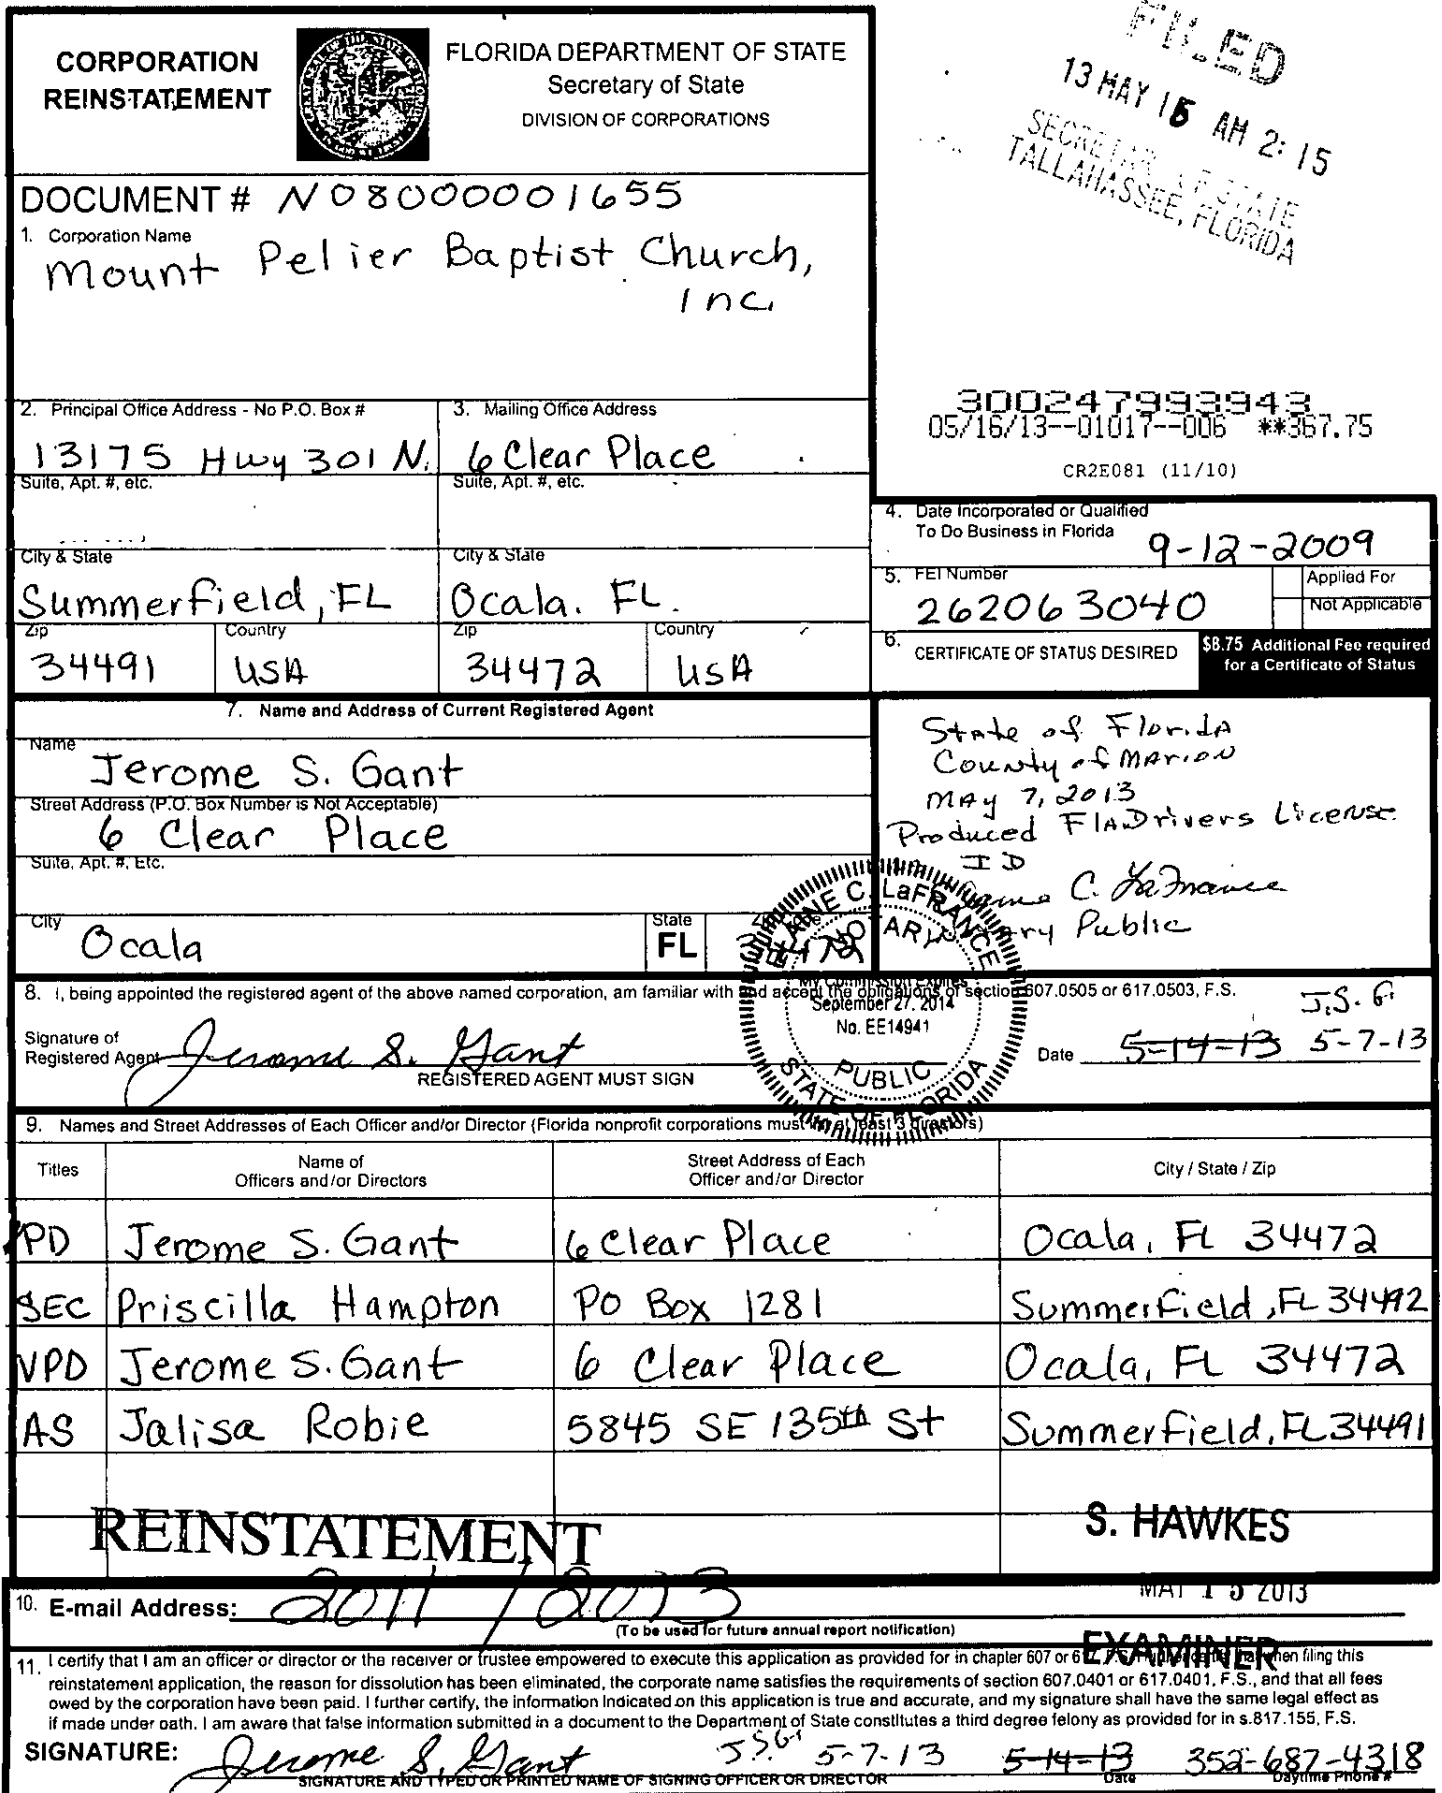 CORPORATION
REINSTATEMENT
FLORIDA DEPARTMENT OF STATE
Secretary of State
DIVISION OF CORPORATIONS
FILED
13 MAY 15 AM 2:15
SECRETARY OF STATE
TALLAHASSEE, FLORIDA
DOCUMENT # N08000001655
1. Corporation Name
Mount Pelier Baptist Church,
Inc.
300247993943
05/16/13--01017--006 **367.75
CR2E081 (11/10)
2. Principal Office Address - No P.O. Box #
13175 Hwy 301 N.
3. Mailing Office Address
6 Clear Place
Suite, Apt. #, etc.
Suite, Apt. #, etc.
City & State
Summerfield, FL
City & State
Ocala. FL.
Zip
34491
Country
USA
Zip
34472
Country
USA
4. Date Incorporated or Qualified
To Do Business in Florida
9-12-2009
5. FEI Number
262063040
Applied For
Not Applicable
6. CERTIFICATE OF STATUS DESIRED
$8.75 Additional Fee required
for a Certificate of Status
7. Name and Address of Current Registered Agent
Name
Jerome S. Gant
Street Address (P.O. Box Number is Not Acceptable)
6 Clear Place
Suite, Apt. #, Etc.
City
Ocala
State
FL
34472
State of Florida
County of Marion
May 7, 2013
Produced Fla Drivers License
ID
C. LaFrance
Notary Public
ELAINE C. LaFRANCE
NOTARY
My Commission Expires
September 27, 2014
No. EE14941
PUBLIC
STATE OF FLORIDA
8. I, being appointed the registered agent of the above named corporation, am familiar with and accept the obligations of section 607.0505 or 617.0503, F.S.
Signature of
Registered Agent Jerome S. Gant
REGISTERED AGENT MUST SIGN
Date 5-14-13 J.S.G. 5-7-13
9. Names and Street Addresses of Each Officer and/or Director (Florida nonprofit corporations must list at least 3 directors)
Titles
Name of
Officers and/or Directors
Street Address of Each
Officer and/or Director
City / State / Zip
PD Jerome S. Gant 6 Clear Place Ocala, FL 34472
SEC Priscilla Hampton PO Box 1281 Summerfield, FL 34492
VPD Jerome S. Gant 6 Clear Place Ocala, FL 34472
AS Jalisa Robie 5845 SE 135th St Summerfield, FL 34491
REINSTATEMENT
2011/2013
S. HAWKES
MAY 15 2013
EXAMINER
10. E-mail Address:
(To be used for future annual report notification)
11. I certify that I am an officer or director or the receiver or trustee empowered to execute this application as provided for in chapter 607 or when filing this
reinstatement application, the reason for dissolution has been eliminated, the corporate name satisfies the requirements of section 607.0401 or 617.0401, F.S., and that all fees
owed by the corporation have been paid. I further certify, the information indicated on this application is true and accurate, and my signature shall have the same legal effect as
if made under oath. I am aware that false information submitted in a document to the Department of State constitutes a third degree felony as provided for in s.817.155, F.S.
SIGNATURE: Jerome S. Gant J.S.G. 5-7-13 5-14-13 352-687-4318
SIGNATURE AND TYPED OR PRINTED NAME OF SIGNING OFFICER OR DIRECTOR
Date
Daytime Phone #